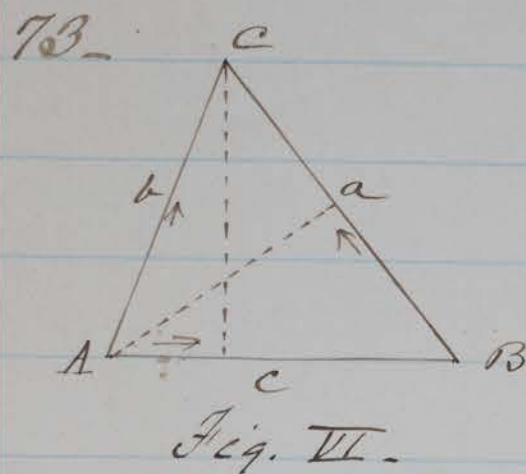 73_
C
b
a
A
B
c
Fig. VI_